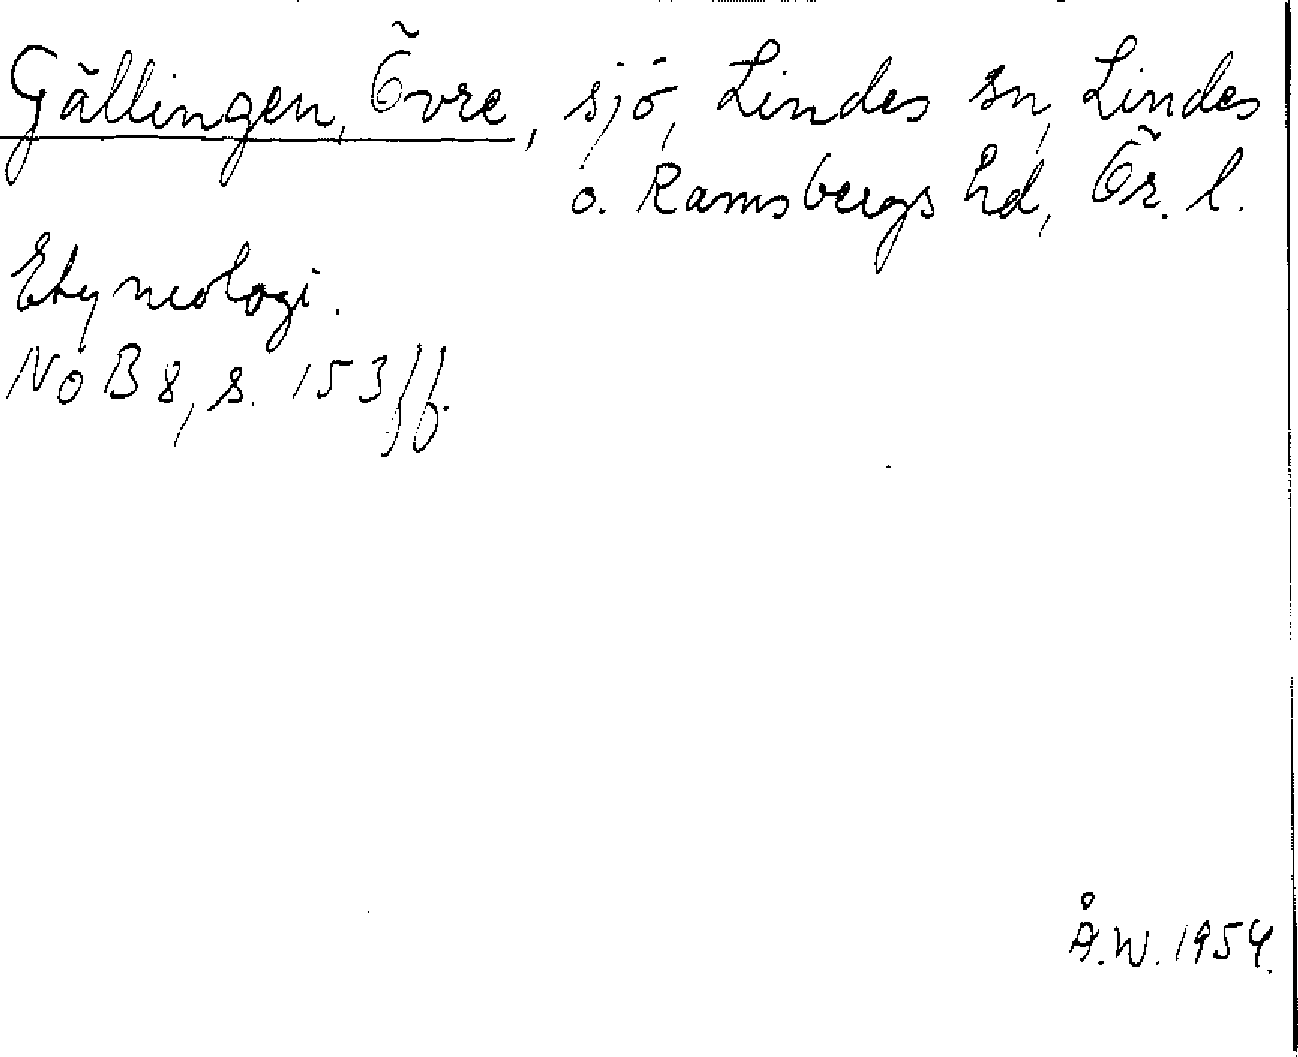 Gällingen, Övre, sjö, Lindes sn, Lindes
o. Ramsbergs hd, Ör. l.
Etymologi.
NoB 8, s. 153 ff.
Å.W. 1954.